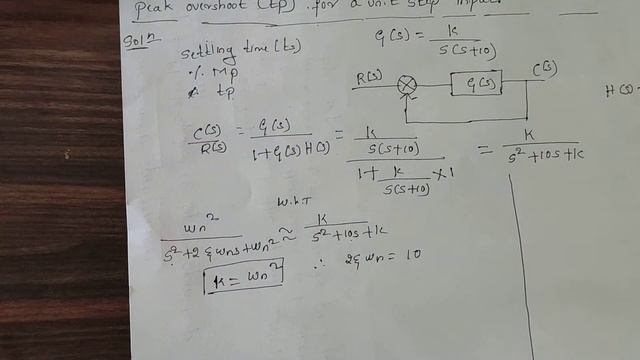 peak overshoot (tp) for a unit step input.
Solⁿ
Settling time (ts)
% Mp
& tp
G(s) = K / S(S+10)
R(s) G(s) C(s)
H(s)
C(s)/R(s) = G(s) / 1+G(s)H(s) = K/S(S+10) / 1+ K/S(S+10) ×1 = K / S²+10S+K
W.K.T
ωn² / S²+2ξωns+ωn² ≈ K / S²+10S+K
K = ωn² ∴ 2ξωn = 10